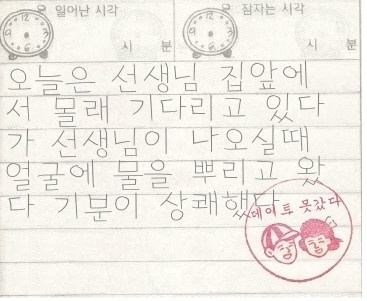 일어난 시각
잠자는 시각
시 분
시 분
오늘은 선생님 집앞에
서 몰래 기다리고 있다
가 선생님이 나오실때
얼굴에 물을 뿌리고 왔
다 기분이 상쾌했다
데이투 못갔다